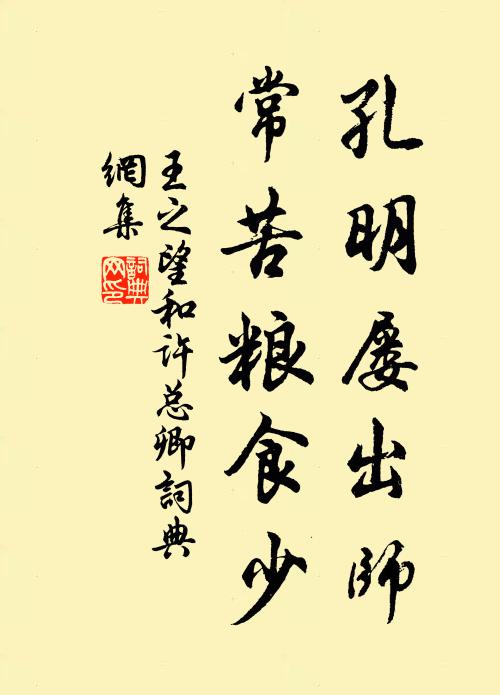 孔明屡出师
常苦粮食少
王之望和许总卿詞典
網集
詞典
网印